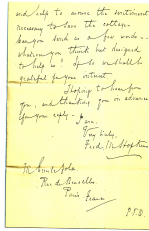 and help to ensure the
necessary to save the cottage.
send us a few words –
whatever you think but designed
to help us? I shall
grateful for your
Hoping to hear from
you, and thanking you in advance
for your reply –
I am,
Very truly,
Fred M. Hopkins
M. Emile Zola
Rue de Bruxelles
Paris France
P.T.O.